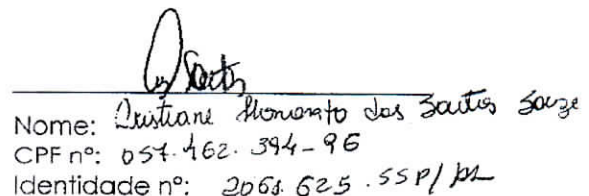 Santos
Nome: Cristiane Honorato dos Santos Souza
CPF nº: 057.462.394-96
Identidade nº: 2061.625.SSP/